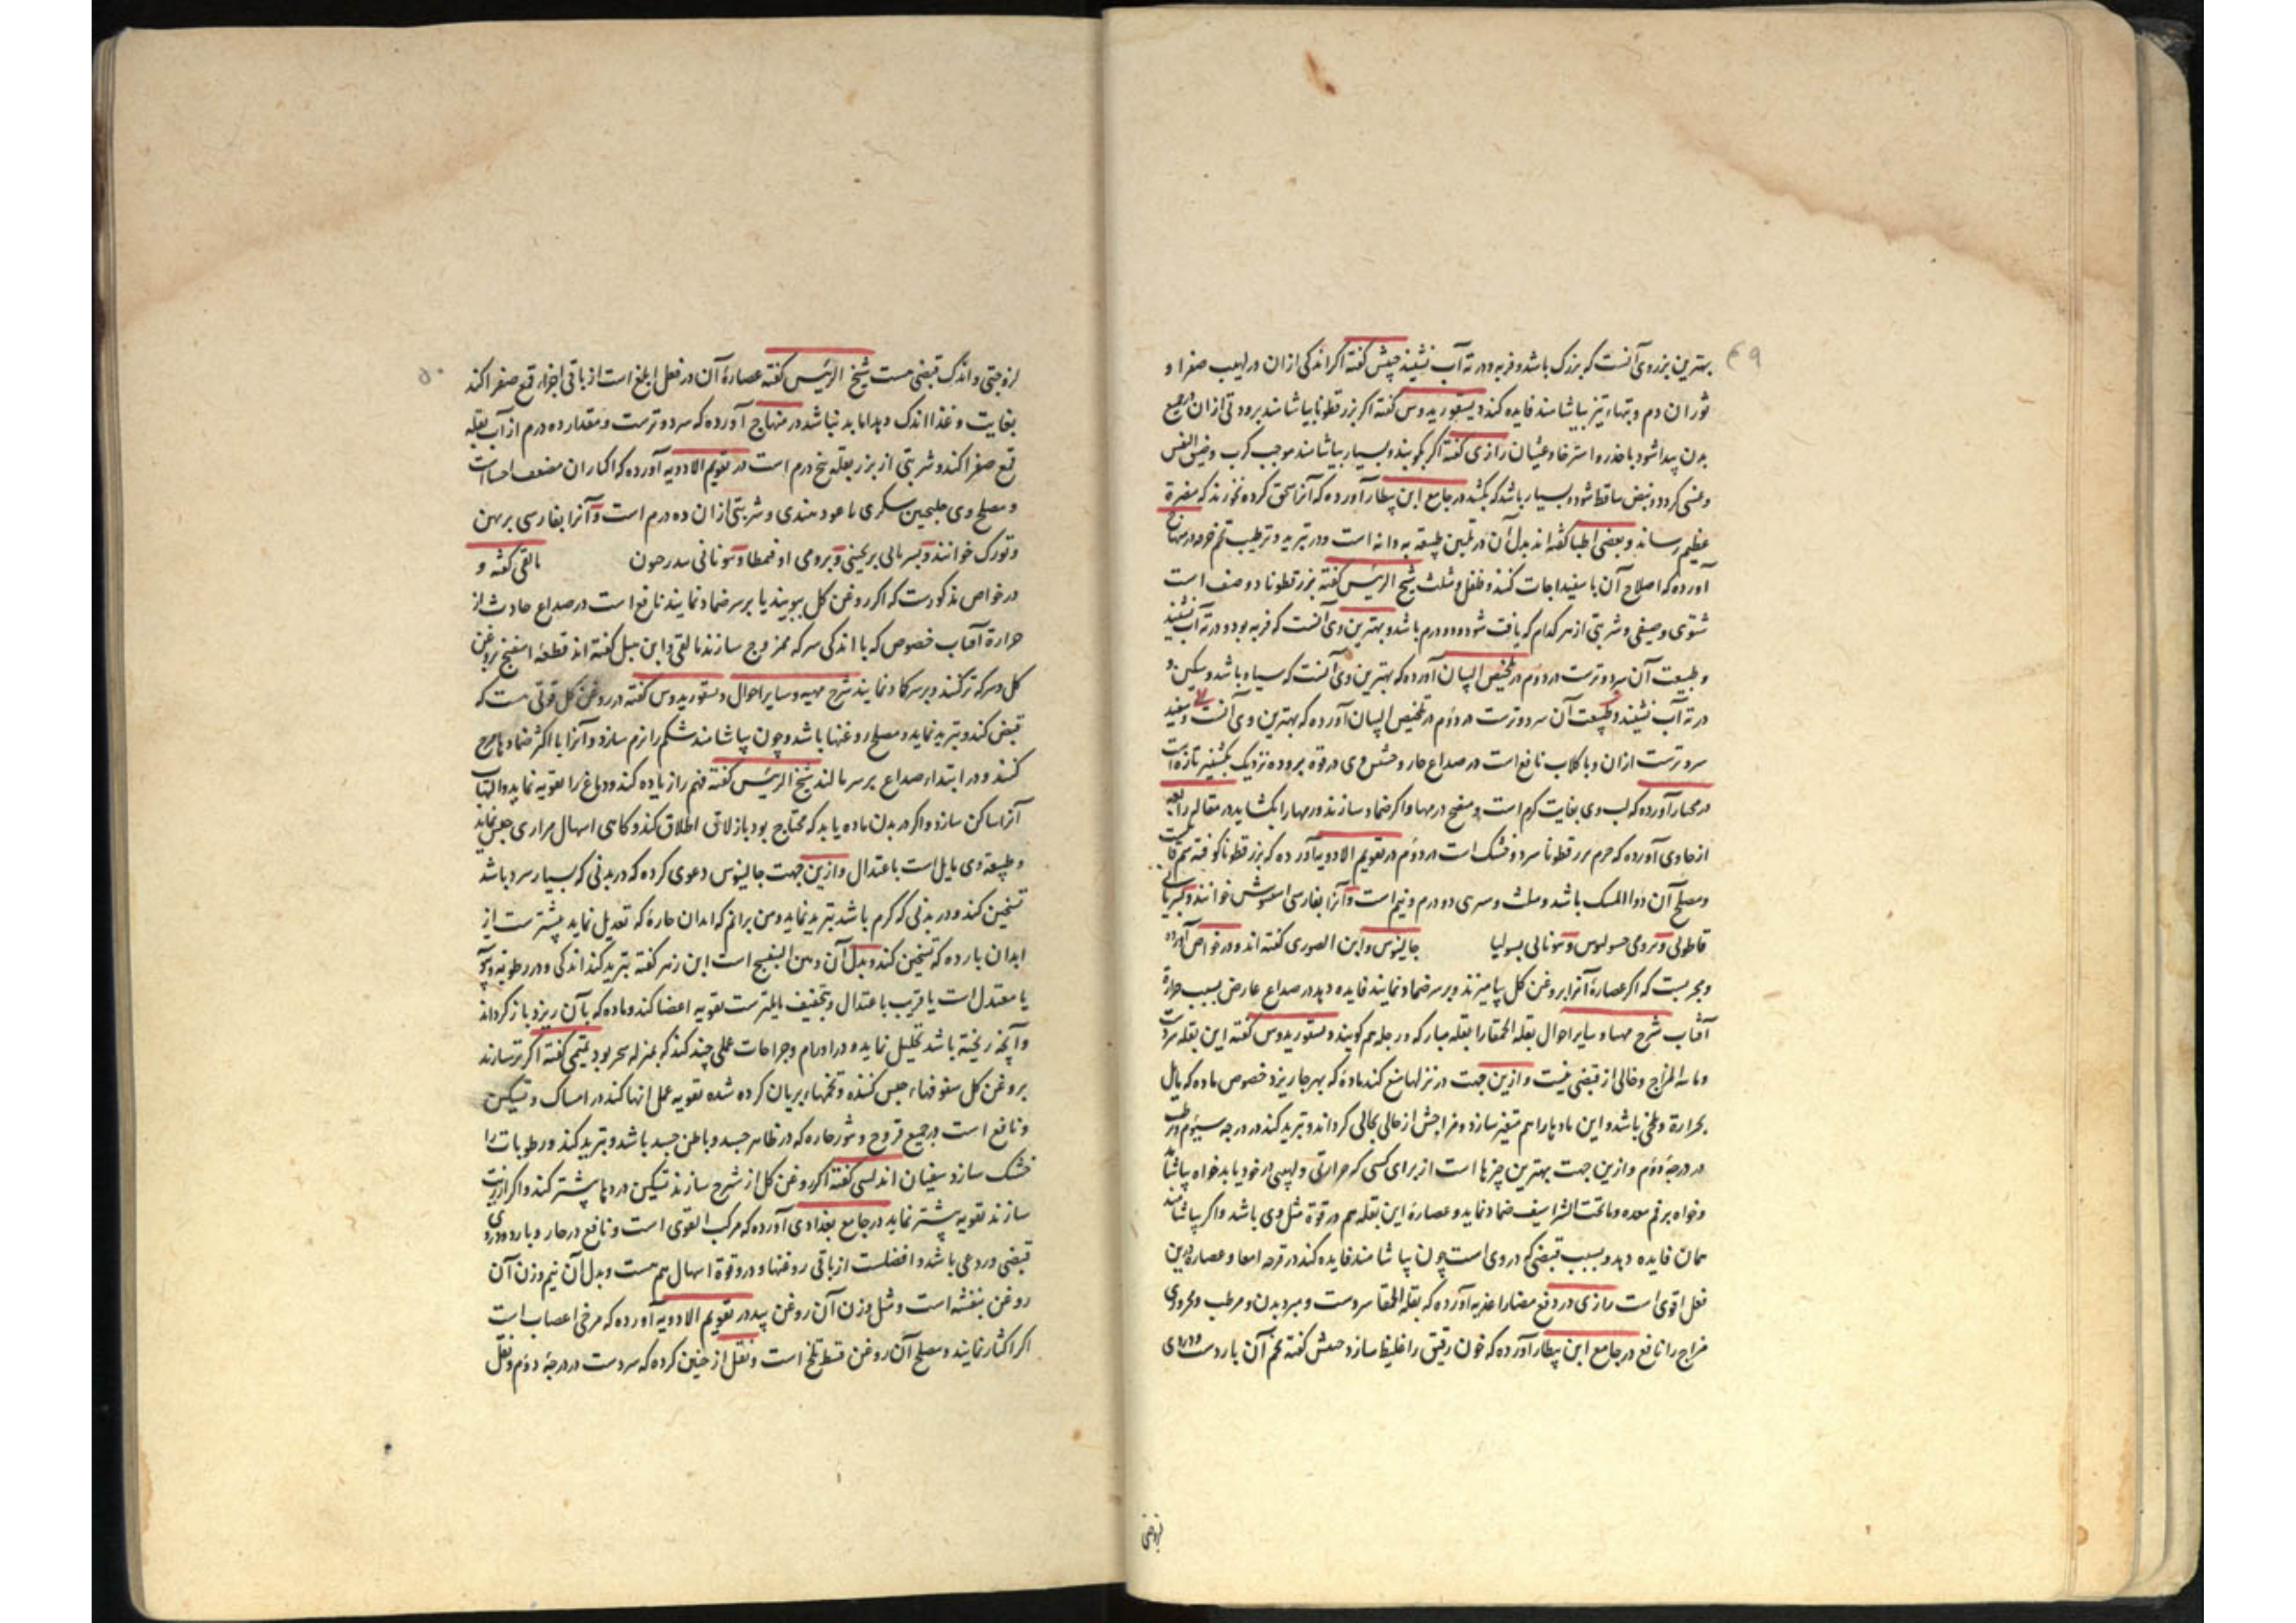 ۴۹
بهترین بزر وی آنست که بزرک باشد و فربه و در ته آب نشیند حبیش گفته اگر اندکی ازان در لهیب صفرا و
ثوران دم و تبهاء تیز بیاشامند فایده کند دیسقوریدوس گفته اگر بزرقطونا بیاشامند برودتی ازان در جمیع
بدن پیدا شود با خدر و استرخا و غشیان رازی گفته اگر بکوبند و بسیار بیاشامند موجب کرب و ضیق النفس
و غشی گردد و نبض ساقط شود و بسیار باشد که بکشد در جامع ابن بیطار آورده که آنرا سحق کرده نخورند که مضرة
عظیم رساند و بعضی اطبا گفته اند بدل آن در تلیین طبیعة به دانه است و در تبرید و ترطیب تخم خرفه در منهاج
آورده که اصلاح آن با سفیداجات کنند و فلفل و مثلث شیخ الرئیس گفته بزرقطونا دو صنف است
شتوی و صیفی و شربتی از هر کدام که یافت شود دو درم باشد و بهترین وی آنست که فربه بود و در ته آب نشیند
و طبیعت آن سرد و ترست در دوم در تلخیص البیان آورده که بهترین وی آنست که سیاه باشد و سنکین و
در ته آب نشیند و طبیعت آن سرد و ترست در دوم در تلخیص البیان آورده که بهترین وی آنست و سفید
سرد ترست ازان و با کلاب نافع است در صداع حار و حشیش وی در قوة بروده نزدیک بکشنیز تازه است
در مختار آورده که لب وی بغایت کرم است و منضج درمها و اگر ضماد سازند ورمها را بکشاید در مقاله رابعه
از حاوی آورده که جرم بزرقطونا سرد و خشک است در دوم در تقویم الادویه آورده که بزرقطونا کوفته سم قاتلست
و مصلح آن دوا المسک باشد و مثلث و شربتی دو درم و نیم است و آنرا بفارسی اسفیوش خوانند و بسریانی
قاطولی و برومی حسولیوس و بیونانی بسولیا جالینوس و ابن الصوری گفته اند و در خواص آورده
و مجربست که اگر عصارۀ آنرا بروغن کل بیامیزند و بر سر ضماد نمایند فایده دهد در صداع عارض بسبب حرارة
آفتاب شرح مهیا و سایر احوال بقلة الحمقا را بقله مبارکه و رجله هم کویند دیسقوریدوس گفته این بقله سردست
و مایه المزاج و خالی از قبضی نیست و ازین جهت در نزلها منع کند مادۀ که بهر جا ریزد خصوص ماده که مایل
بحرارة و تلخی باشد و این مادها را هم متغیر سازد و مزاجش از حالی بحالی کرداند و تبرید کند در درجه سیوم و ترطیب
در درجۀ دوم و ازین جهت بهترین چیزها است از برای کسی که حرارتی و لهیبی در خود یابد خواه بیاشامد
و خواه بر فم معده و ما تحت الشراسیف ضماد نماید و عصارۀ این بقله هم در قوة مثل وی باشد و اگر بیاشامند
همان فایده دهد و بسبب قبضی که در وی است چون بیاشامند فایده کند در قرحه امعا و عصاره درین
فعل اقوی است رازی در دفع مضار اغذیه آورده که بقلة الحمقا سردست و مبرد بدن و مرطب و محروری
مزاج را نافع در جامع ابن بیطار آورده که خون رقیق را غلیظ سازد حبیش گفته تخم آن باردست و در وی
لزوجتی
۵۰
لزوجتی و اندک قبضی هست شیخ الرئیس گفته عصارۀ آن در فعل ابلغ است از باقی اجزا و قمع صفرا کند
بغایت و غذا اندک دهد اما بد نباشد در منهاج آورده که سرد و ترست و مقدار ده درم از آب بقله
قمع صفرا کند و شربتی از بزر بقله پنج درم است در تقویم الادویه آورده که اکثار ان مضعف احشاست
و مصلح وی جلنجبین سکری با عود هندی و شربتی ازان ده درم است و آنرا بفارسی پرپهن
و تورک خوانند و بسریانی بربحینی و برومی اوقمطا و بیونانی سدرحون بالقی گفته و
در خواص مذکورست که اگر روغن کل ببویند یا بر سر ضماد نمایند نافع است در صداع حادث از
حرارة آفتاب خصوص که با اندکی سرکه ممزوج سازند بالقی و ابن هبل گفته اند قطعۀ اسفنج بروغن
کل و سرکه تر کنند و بر سر کماد نمایند شرح مهیه و سایر احوال دیسقوریدوس گفته در روغن کل قوتی هست که
قبض کند و تبرید نماید و مصلح روغنها باشد و چون بیاشامند شکم را نرم سازد و آنرا با اکثر ضمادها مزج
کنند و در ابتداء صداع بر سر مالند شیخ الرئیس گفته فهم را زیاده کند و دماغ را تقویه نماید و التهاب
آنرا ساکن سازد و اگر در بدن ماده یابد که محتاج بود بازلاق اطلاق کند و کاهی اسهال مراری حبس نماید
و طبیعة وی مایل است باعتدال و ازین جهت جالینوس دعوی کرده که در بدنی که بسیار سرد باشد
تسخین کند و در بدنی که گرم باشد تبرید نماید و من برانم که ابدان حاره که تعدیل نماید بیشترست از
ابدان بارده که تسخین کند و بدل آن دهن البنفسج است ابن زهر گفته تبرید کند اندکی و در رطوبة و یبوسة
یا معتدل است یا قریب باعتدال و بتجفیف مایلترست تقویه اعضا کند و ماده که بآن ریزد باز کرداند
و آنچه ریخته باشد تحلیل نماید و در اورام و جراحات عملی چند کند که بمنزله سحر بود تمیمی گفته اگر تر سازند
بروغن کل سفوفهاء حبس کننده و تخمهاء بریان کرده شده تقویه عمل انها کند در امساک و تسکین
و نافع است در جمیع قروح و بثور حاره که در ظاهر جسد و باطن جسد باشد و تبرید کند و رطوبات را
خشک سازد سفیان اندلسی گفته اگر روغن کل از شیرج سازند تسکین دردها بیشتر کند و اگر از زیت
سازند تقویه بیشتر نماید در جامع بغدادی آورده که مرکب القوی است و نافع در حار و بارد و در وی
قبضی و ردعی باشد و افضلست از باقی روغنها و در وی قوة اسهال هم هست و بدل آن نیم وزن آن
روغن بنفشه است و مثل وزن آن روغن بید در تقویم الادویه آورده که مرخی اعصاب است
اگر اکثار نمایند و مصلح آن روغن قسط تلخ است و نقل از حنین کرده که سردست در درجۀ دوم و نقل